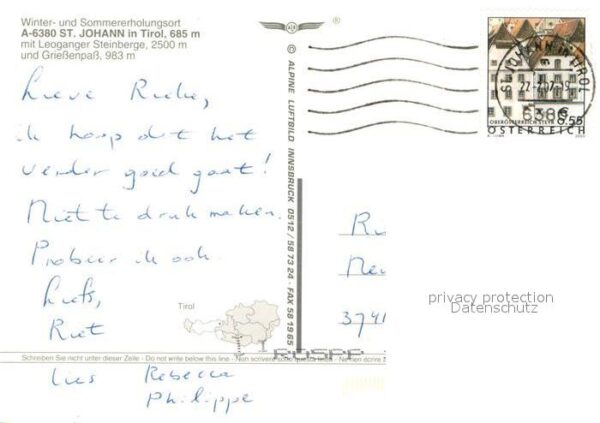 Winter- und Sommererholungsort
A-6380 ST. JOHANN in Tirol, 685 m
mit Leoganger Steinberge, 2500 m
und Grießenpaß, 983 m
Lieve Rucky,
ik hoop dat het
verder goed gaat!
Niet te druk maken.
Probeer ik ook.
Liefs,
Riet
Lies Rebecca
Philippe
© ALPINE LUFTBILD INNSBRUCK 0512 / 58 73 24 - FAX 58 19 65
Tirol
Schreiben Sie nicht unter dieser Zeile - Do not write below this line - Non scrivere sotto questa linea - Ne rien écrire
ST. JOHANN in TIROL
6380
€ 0,55
OBERÖSTERREICH STEYR
ÖSTERREICH
Ru
3741
privacy protection
Datenschutz